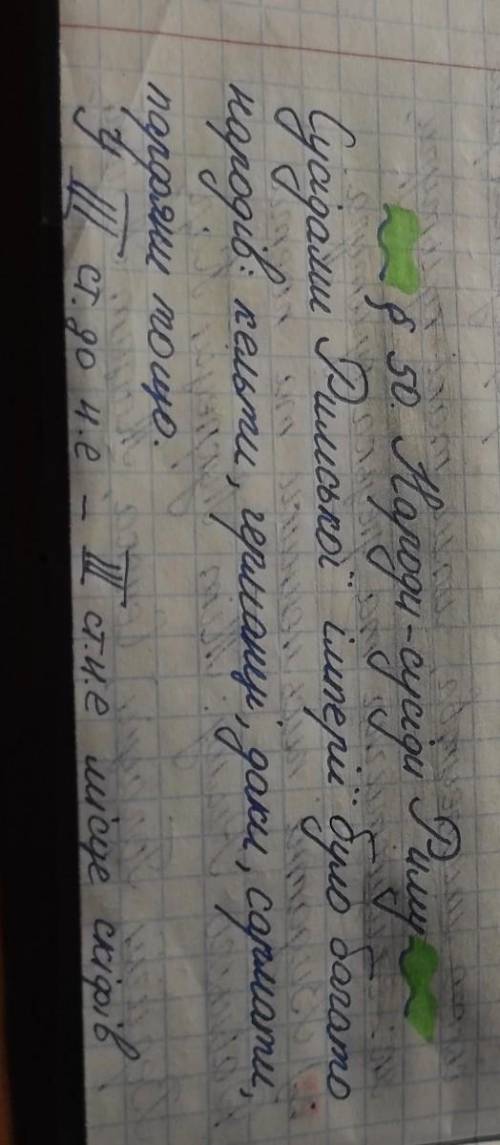 § 50. Народи-сусіди Риму
Сусідами Римської імперії було багато
народів: кельти, германці, даки, сармати,
парфяни тощо.
У III ст. до н.е - III ст.н.е місце скіфів